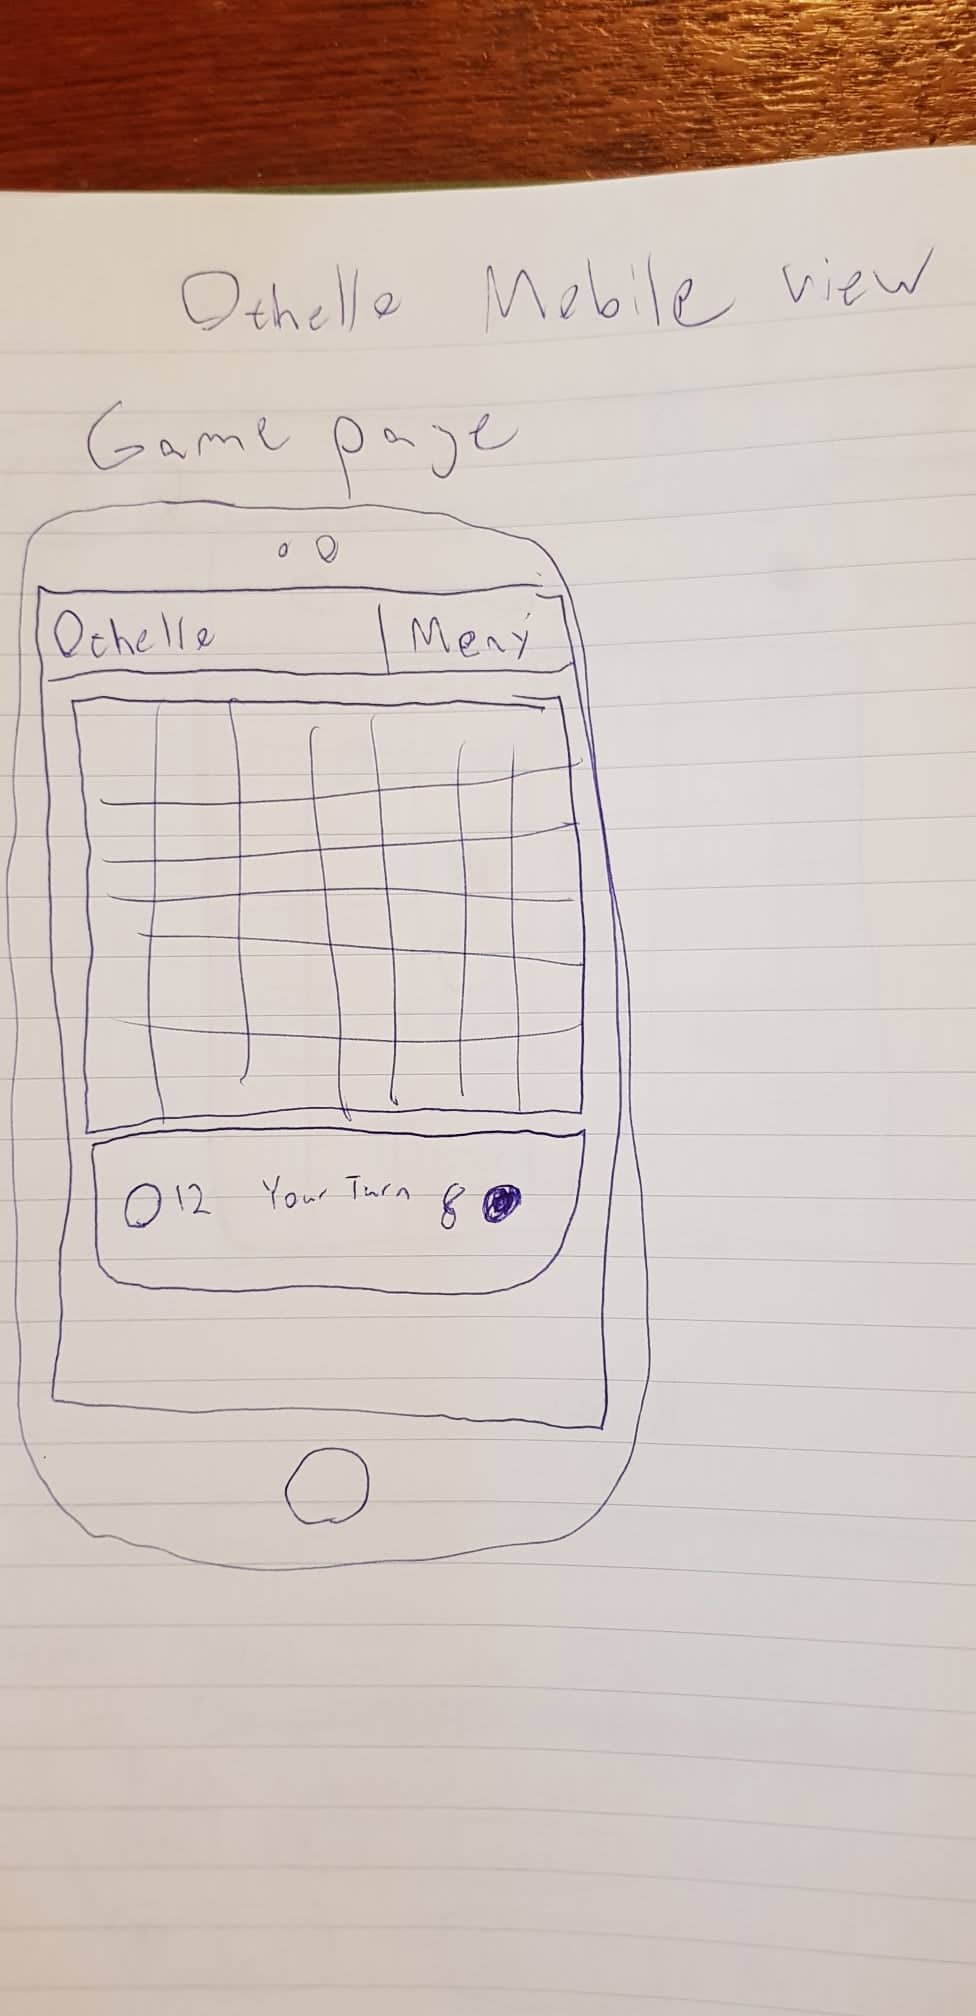 Othello Mobile view
Game page
Othello Meny
12 Your Turn 8